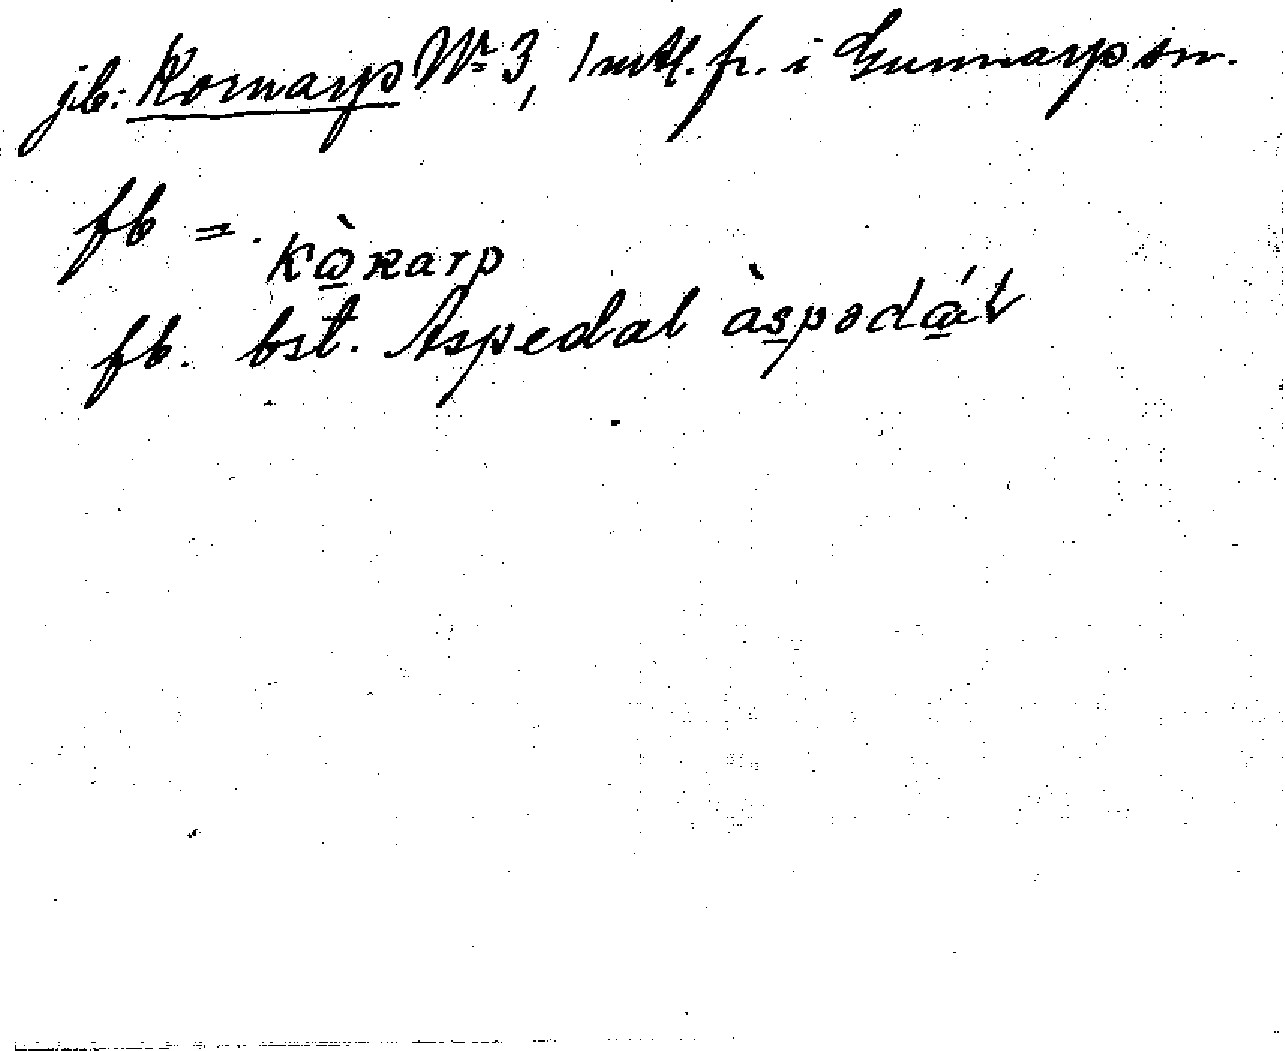 jb: Kornarp Nr 3, 1 mtl. fr. i Gunnarp sn.
fb =. kɷ̀ɴarp
fb. bst. Aspedal àspədɷ́l